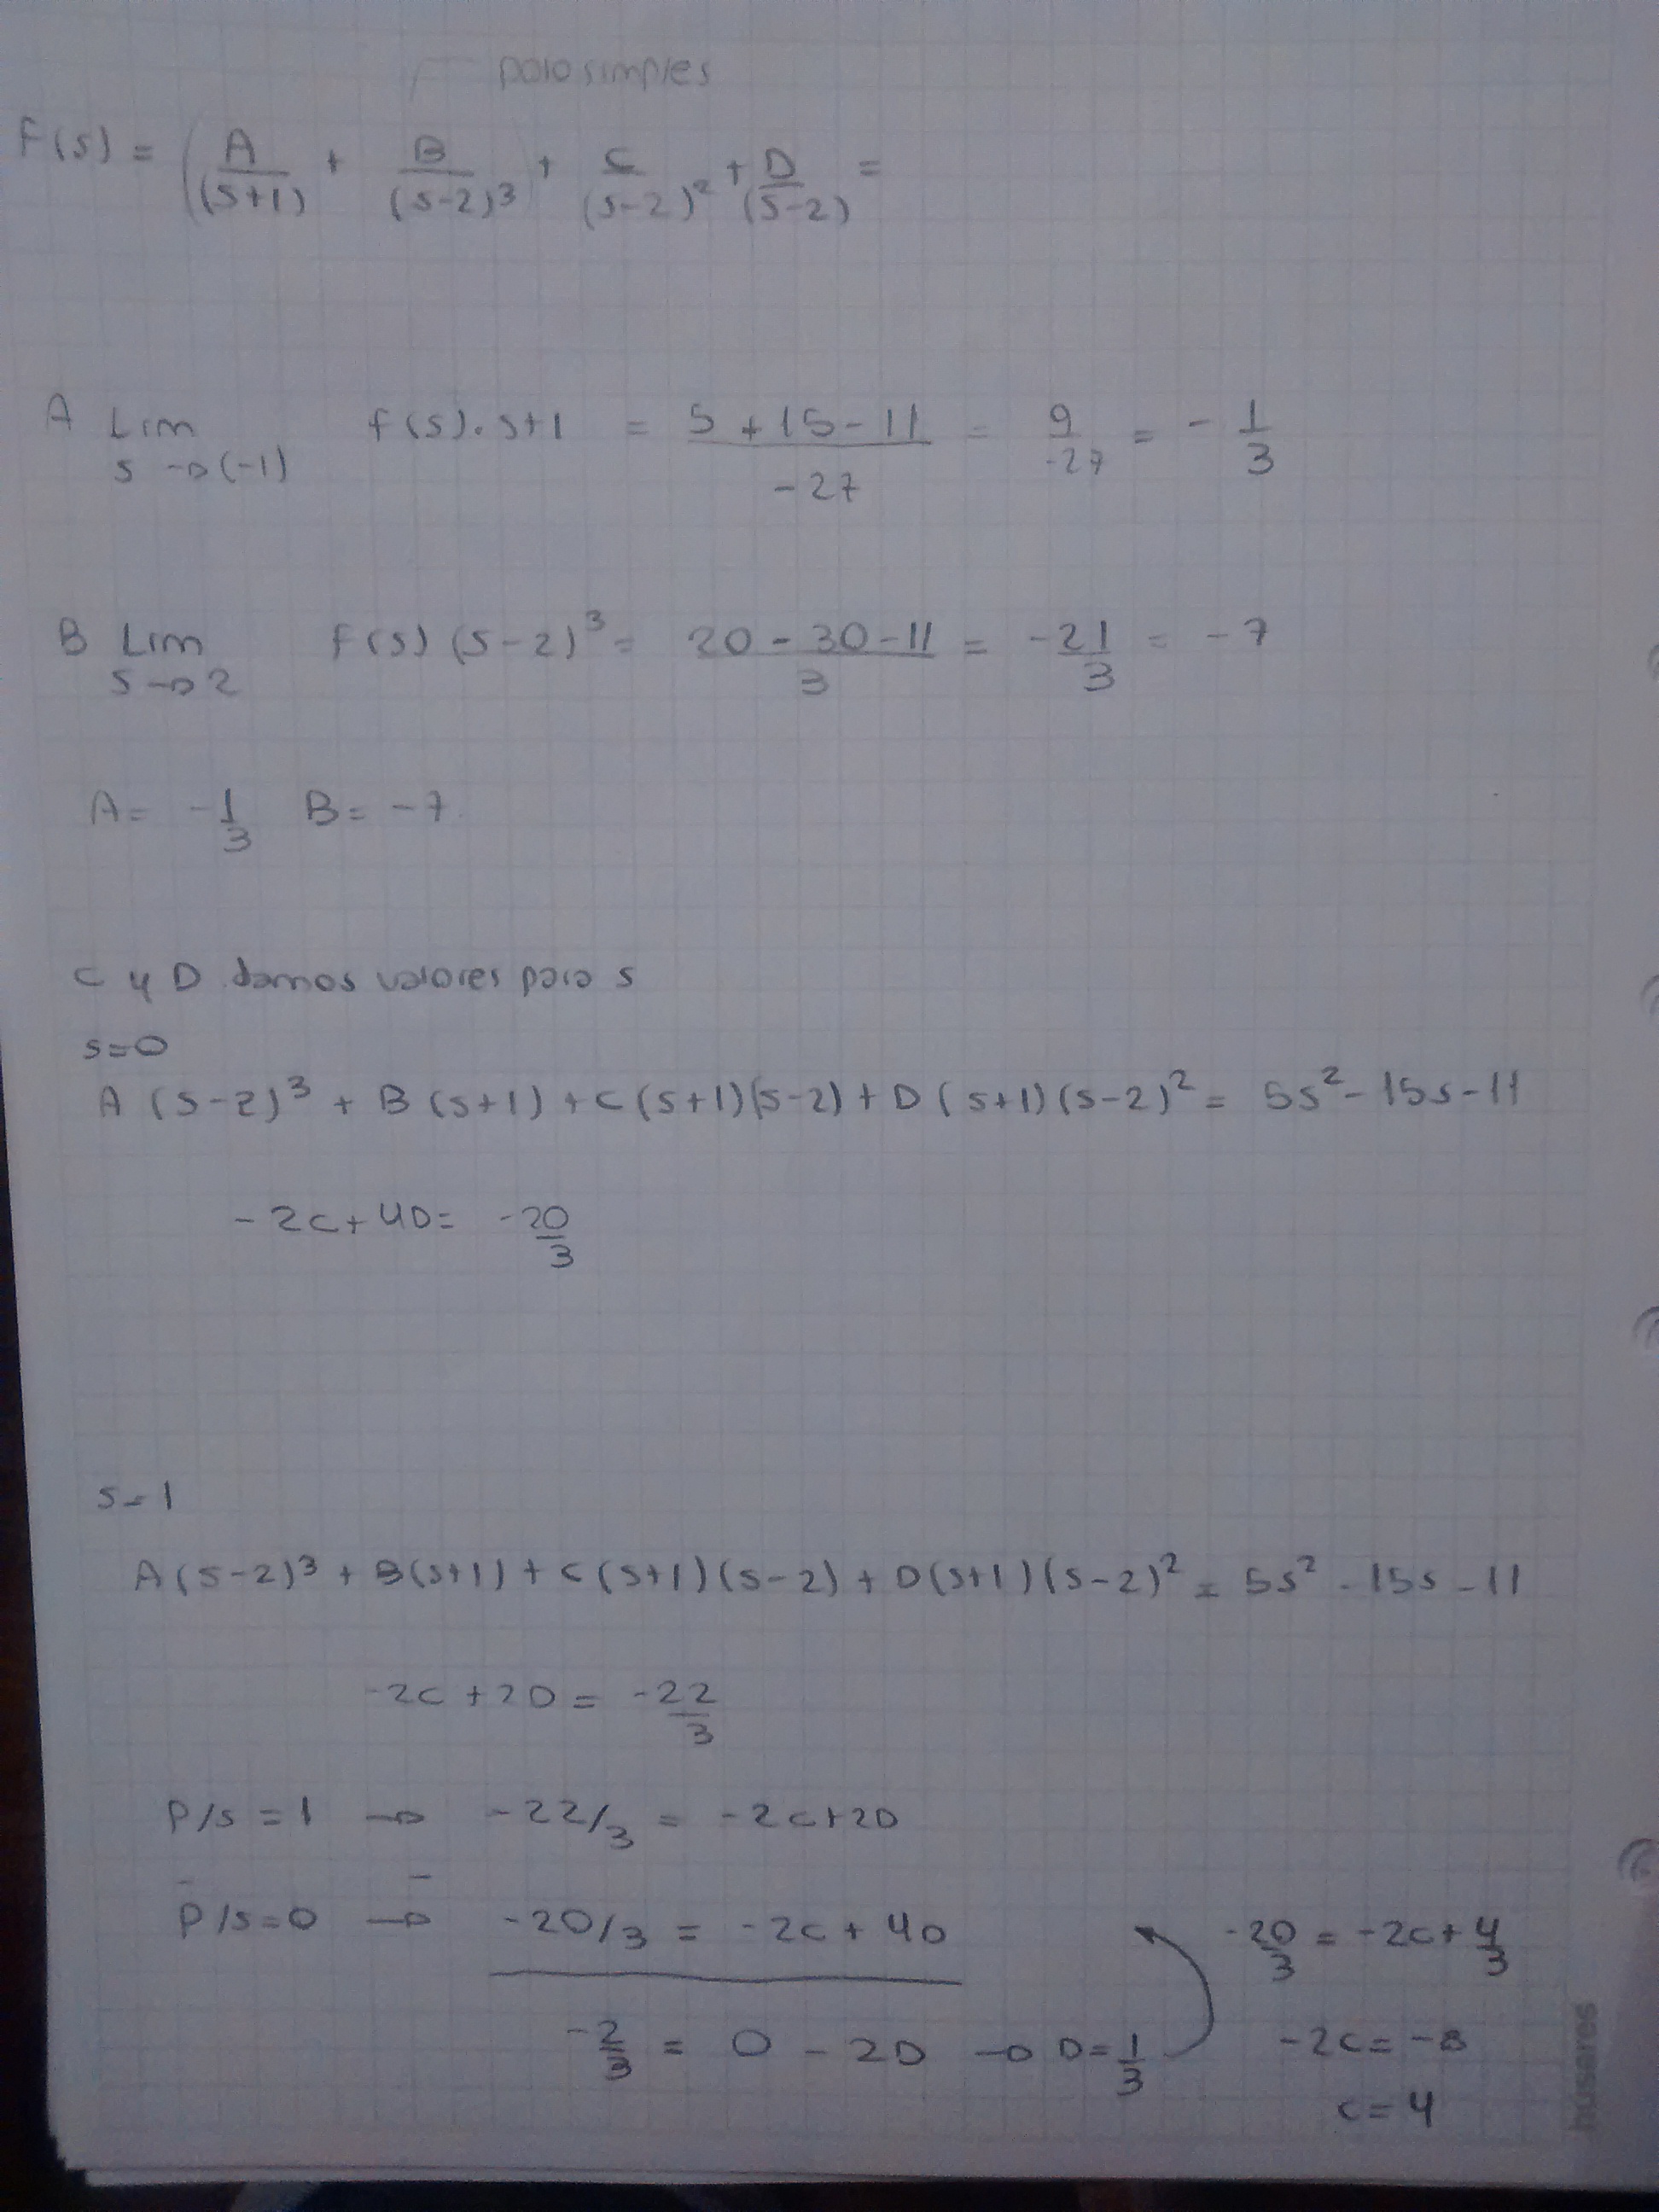 polo simples
F(s) = ( A/(s+1) + B/(s-2)³ ) + C/(s-2)² + D/(s-2) =
A Lim s→(-1) f(s).s+1 = (5+15-11)/-27 = 9/-27 = -1/3
B Lim s→2 f(s)(s-2)³ = (20-30-11)/3 = -21/3 = -7
A= -1/3 B= -7
C y D damos valores para s
s=0
A(s-2)³ + B(s+1) + C(s+1)(s-2) + D(s+1)(s-2)² = 5s² - 15s - 11
-2C+4D = -20/3
s=1
A(s-2)³ + B(s+1) + C(s+1)(s-2) + D(s+1)(s-2)² = 5s² - 15s - 11
-2C+2D = -22/3
P/s=1 → -22/3 = -2C+2D
- -
P/s=0 → -20/3 = -2C + 4D
-20/3 = -2C + 4/3
-2/3 = 0 - 2D → D=1/3
-2C = -8
C=4
husares